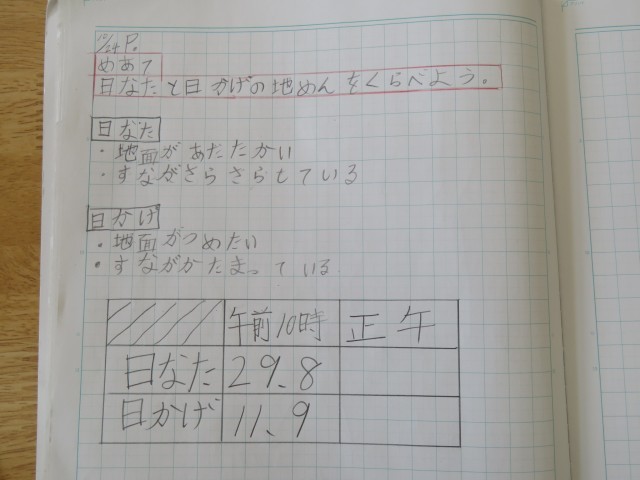 10/24 P.
めあて
日なたと日かげの地めんをくらべよう。
日なた
・地面があたたかい
・すながさらさらしている
日かげ
・地面がつめたい
・すながかたまっている
午前10時 正午
日なた 29.8
日かげ 11.9